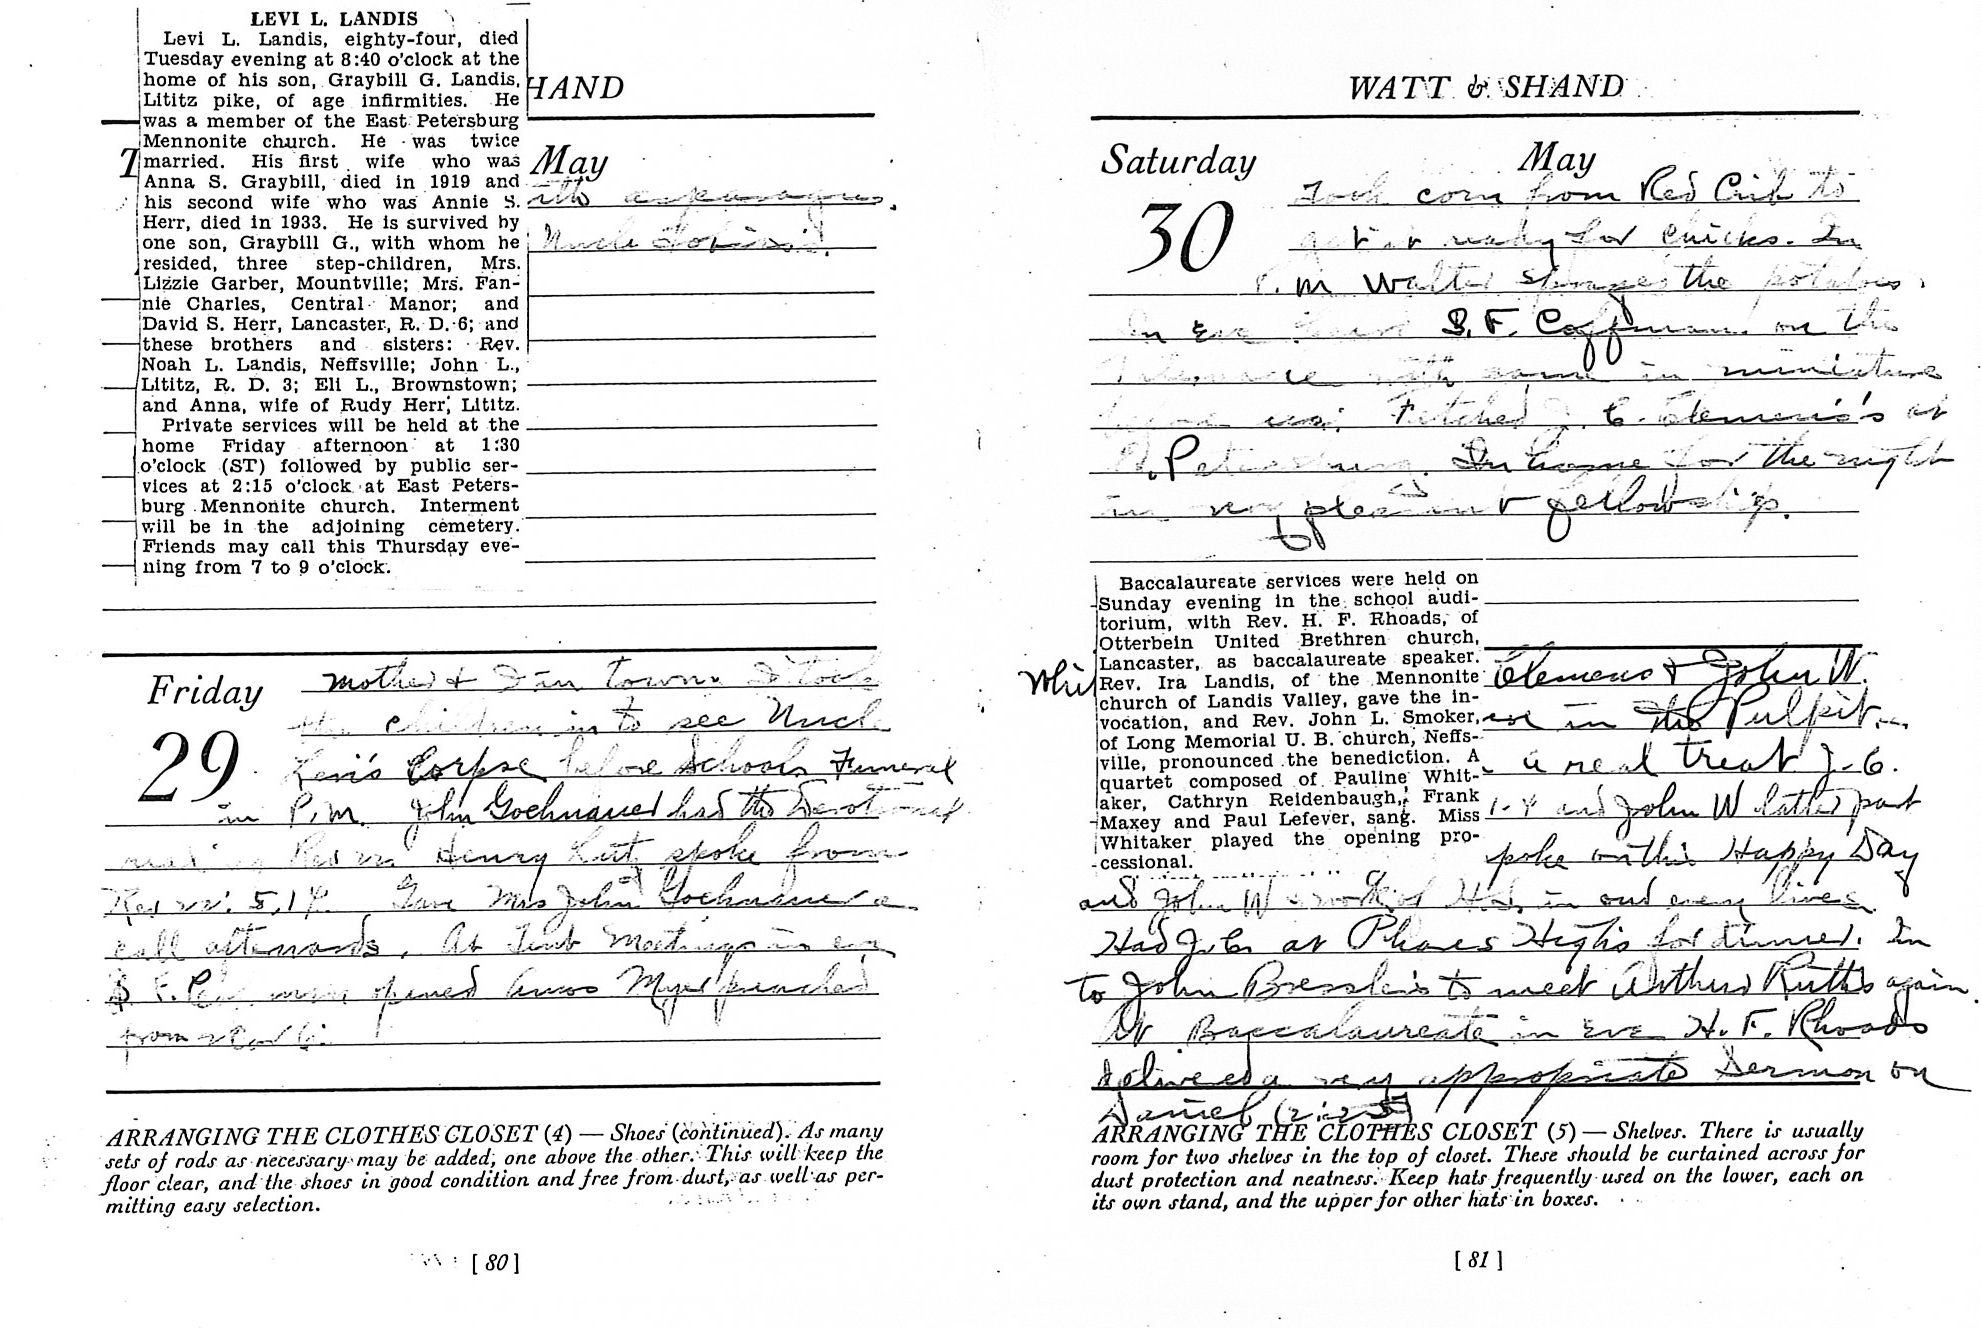 LEVI L. LANDIS
Levi L. Landis, eighty-four, died
Tuesday evening at 8:40 o'clock at the
home of his son, Graybill G. Landis,
Lititz pike, of age infirmities. He
was a member of the East Petersburg
Mennonite church. He was twice
married. His first wife who was
Anna S. Graybill, died in 1919 and
his second wife who was Annie S.
Herr, died in 1933. He is survived by
one son, Graybill G., with whom he
resided, three step-children, Mrs.
Lizzie Garber, Mountville; Mrs. Fan-
nie Charles, Central Manor; and
David S. Herr, Lancaster, R. D. 6; and
these brothers and sisters: Rev.
Noah L. Landis, Neffsville; John L.,
Lititz, R. D. 3; Eli L., Brownstown;
and Anna, wife of Rudy Herr, Lititz.
Private services will be held at the
home Friday afternoon at 1:30
o'clock (ST) followed by public ser-
vices at 2:15 o'clock at East Peters-
burg Mennonite church. Interment
will be in the adjoining cemetery.
Friends may call this Thursday eve-
ning from 7 to 9 o'clock.
HAND
T May
asparagus.
Uncle
Friday
29
Mother & I in town. I took
the children in to see Uncle
Levi's Corpse before School. Funeral
in P.M. John Gochnauer had the Devotional
Henry Lutz spoke from
Rev 22: 5,14. Gave Mrs John Gochnauer a
call afterwards. At Tent Meetings in eve
opened Amos Myer preached
from
ARRANGING THE CLOTHES CLOSET (4) — Shoes (continued). As many
sets of rods as necessary may be added, one above the other. This will keep the
floor clear, and the shoes in good condition and free from dust, as well as per-
mitting easy selection.
[ 80 ]
WATT & SHAND
Saturday May
30
Took corn from Red Crib to
get it ready for chicks. In
P.M Walter the potatoes.
In Eve heard S. F. Coffman on the
Tabernacle with same in miniature
before us. Fetched J. C. Clemens's at
E. Petersburg. In home for the night
in very pleasant fellowship.
Baccalaureate services were held on
Sunday evening in the school audi-
torium, with Rev. H. F. Rhoads, of
Otterbein United Brethren church,
Lancaster, as baccalaureate speaker.
Rev. Ira Landis, of the Mennonite
church of Landis Valley, gave the in-
vocation, and Rev. John L. Smoker,
of Long Memorial U. B. church, Neffs-
ville, pronounced the benediction. A
quartet composed of Pauline Whit-
aker, Cathryn Reidenbaugh, Frank
Maxey and Paul Lefever, sang. Miss
Whitaker played the opening pro-
cessional.
Whi Clemens & John W.
in the Pulpit.
a real treat J. C.
and John W latter part
poke on this Happy Day
and John W work of H.S. in our every lives
Had J.C.s at Phares High's for dinner. In
to John Bressler's to meet Arthur Ruth's again.
At Baccalaureate in Eve H. F. Rhoads
delivered a very appropriate Sermon on
Daniel
ARRANGING THE CLOTHES CLOSET (5) — Shelves. There is usually
room for two shelves in the top of closet. These should be curtained across for
dust protection and neatness. Keep hats frequently used on the lower, each on
its own stand, and the upper for other hats in boxes.
[ 81 ]